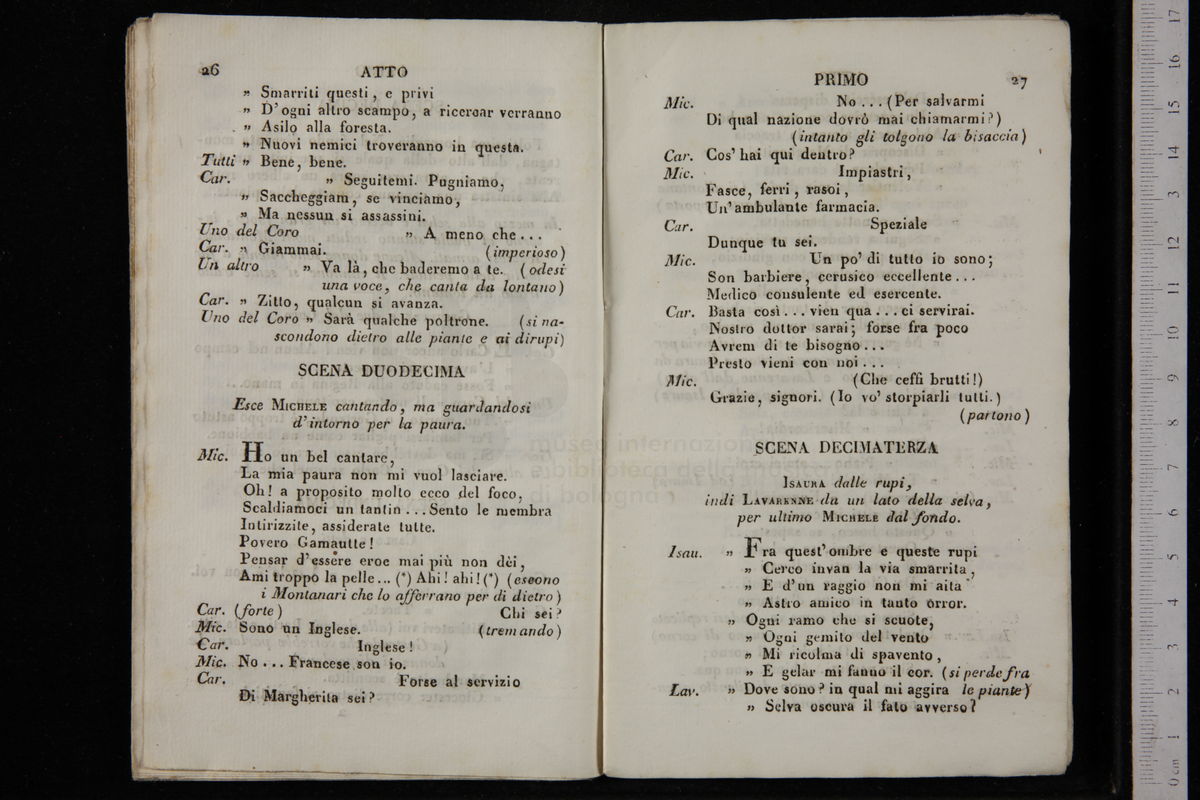 26 ATTO
" Smarriti questi, e privi
" D'ogni altro scampo, a ricercar verranno
" Asilo alla foresta.
" Nuovi nemici troveranno in questa.
Tutti " Bene, bene.
Car. " Seguitemi. Pugniamo,
" Saccheggiam, se vinciamo,
" Ma nessun si assassini.
Uno del Coro " A meno che...
Car. " Giammai. (imperioso)
Un altro " Va là, che baderemo a te. (odesi
una voce, che canta da lontano)
Car. " Zitto, qualcun si avanza.
Uno del Coro " Sarà qualche poltrone. (si na-
scondono dietro alle piante e ai dirupi)
SCENA DUODECIMA
Esce MICHELE cantando, ma guardandosi
d'intorno per la paura.
Mic. Ho un bel cantare,
La mia paura non mi vuol lasciare.
Oh! a proposito molto ecco del foco,
Scaldiamoci un tantin... Sento le membra
Intirizzite, assiderate tutte.
Povero Gamautte!
Pensar d'essere eroe mai più non dèi,
Ami troppo la pelle... (*) Ahi! ahi! (*) (escono
i Montanari che lo afferrano per di dietro)
Car. (forte) Chi sei?
Mic. Sono un Inglese. (tremando)
Car. Inglese!
Mic. No... Francese son io.
Car. Forse al servizio
Di Margherita sei?
PRIMO 27
Mic. No... (Per salvarmi
Di qual nazione dovrò mai chiamarmi?)
(intanto gli tolgono la bisaccia)
Car. Cos'hai qui dentro?
Mic. Impiastri,
Fasce, ferri, rasoi,
Un'ambulante farmacia.
Car. Speziale
Dunque tu sei.
Mic. Un po' di tutto io sono;
Son barbiere, cerusico eccellente...
Medico consulente ed esercente.
Car. Basta così... vien qua... ci servirai.
Nostro dottor sarai; forse fra poco
Avrem di te bisogno...
Presto vieni con noi...
Mic. (Che ceffi brutti!)
Grazie, signori. (Io vo' storpiarli tutti.)
(partono)
SCENA DECIMATERZA
ISAURA dalle rupi,
indi LAVARENNE da un lato della selva,
per ultimo MICHELE dal fondo.
Isau. " Fra quest'ombre e queste rupi
" Cerco invan la via smarrita,
" E d'un raggio non mi aita
" Astro amico in tanto orror.
" Ogni ramo che si scuote,
" Ogni gemito del vento
" Mi ricolma di spavento,
" E gelar mi fanno il cor. (si perde fra
Lav. " Dove sono? in qual mi aggira le piante)
" Selva oscura il fato avverso?
museo internazion
e biblioteca della
di bologna
0 cm 1 2 3 4 5 6 7 8 9 10 11 12 13 14 15 16 17